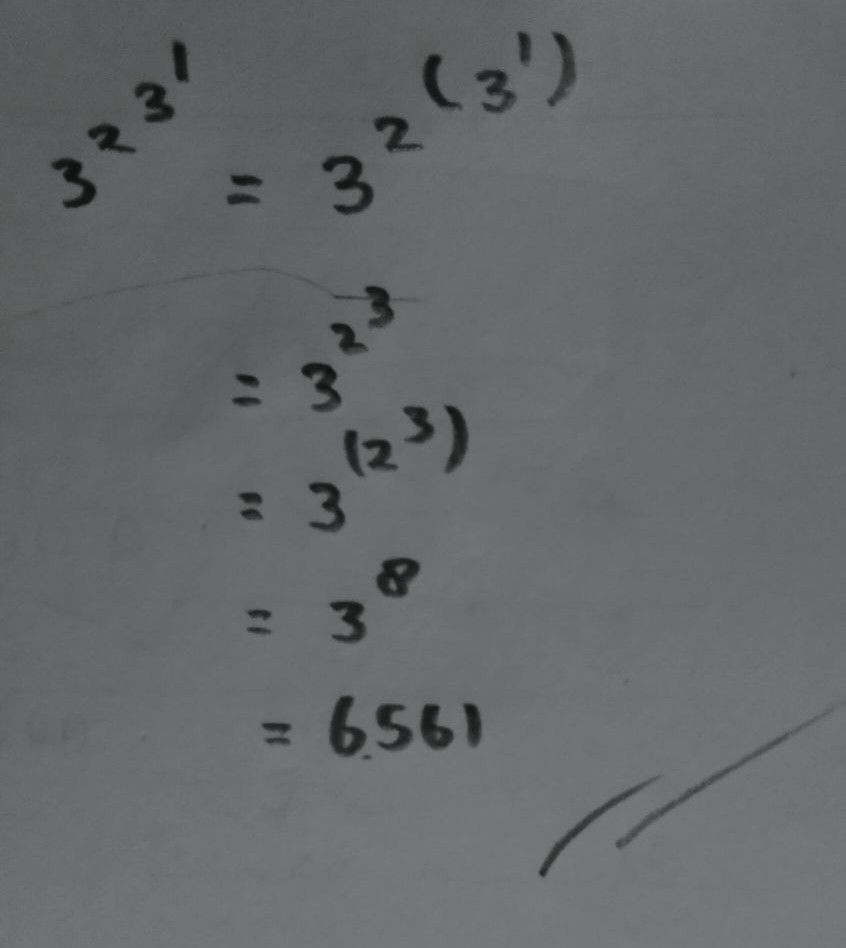 3^2^3^1 = 3^2^(3^1)
= 3^2^3
= 3^(2^3)
= 3^8
= 6.561